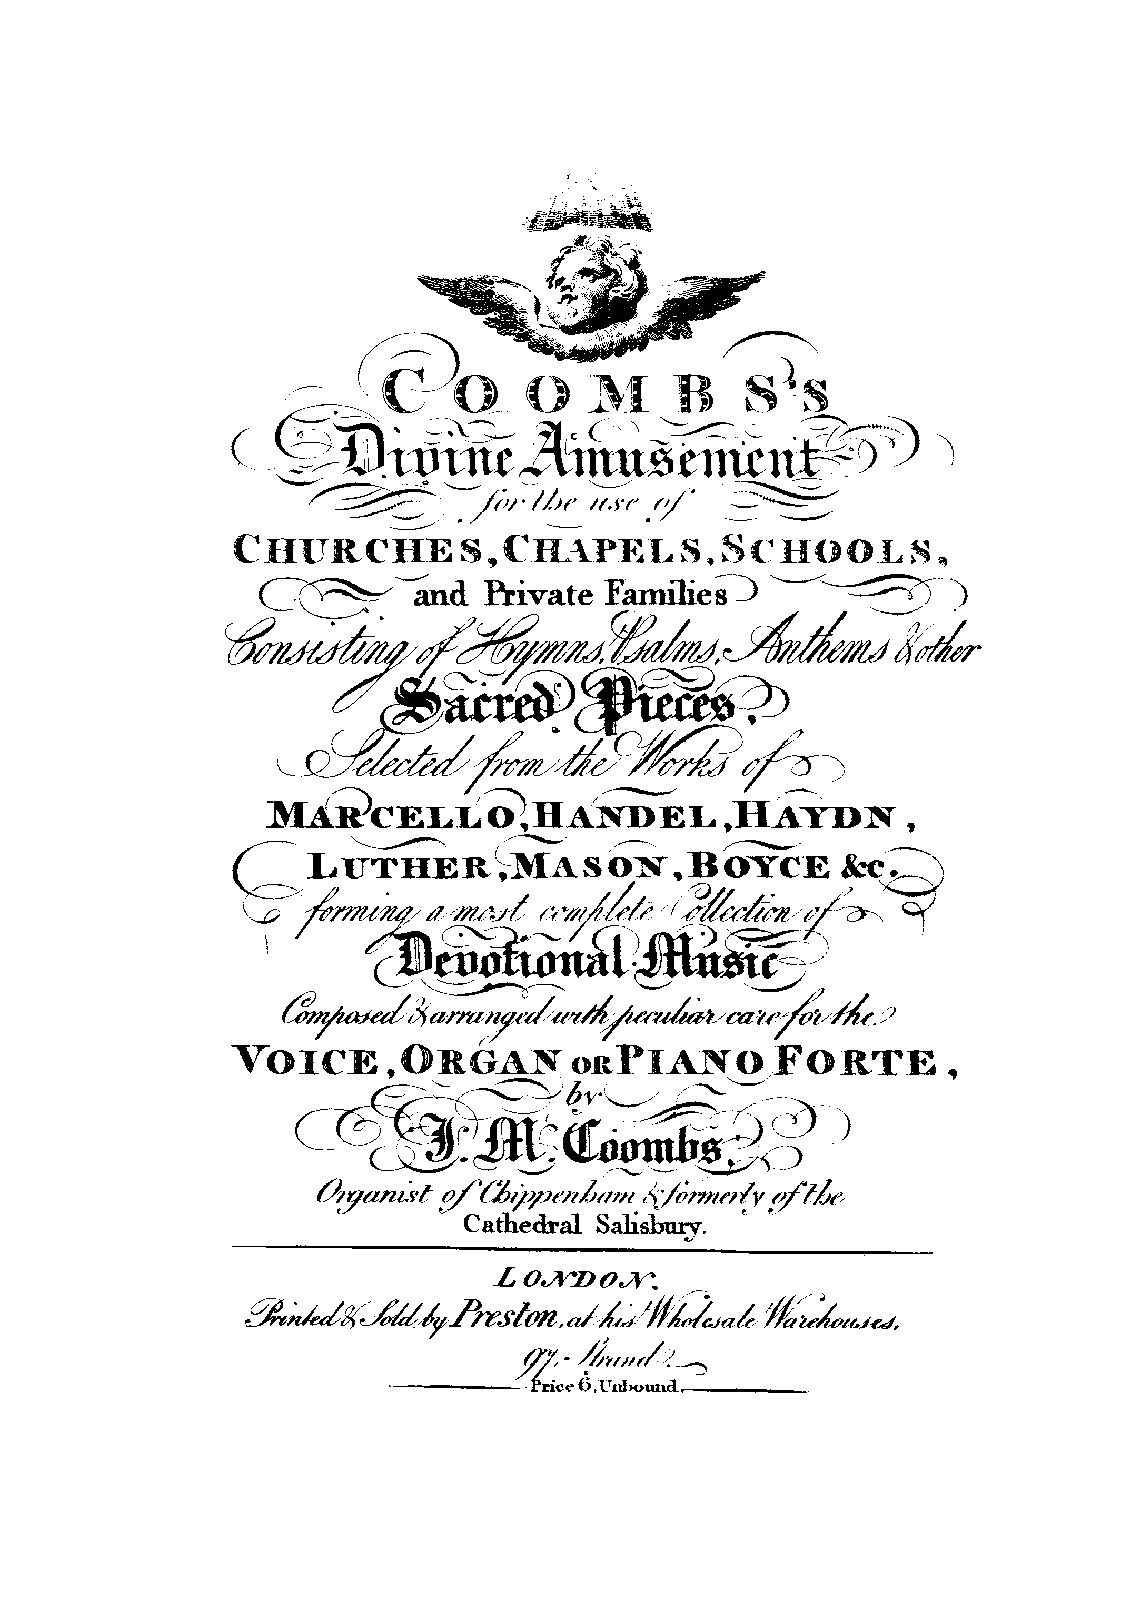 COOMBS's
Divine Amusement
for the use of
CHURCHES, CHAPELS, SCHOOLS,
and Private Families
Consisting of Hymns, Psalms, Anthems & other
Sacred Pieces,
Selected from the Works of
MARCELLO, HANDEL, HAYDN,
LUTHER, MASON, BOYCE &c.
forming a most complete Collection of
Devotional Music
Composed & arranged with peculiar care for the
VOICE, ORGAN OR PIANO FORTE,
by
J. M. Coombs,
Organist of Chippenham & formerly of the
Cathedral Salisbury.
LONDON.
Printed & Sold by Preston, at his Wholesale Warehouses,
97, Strand.
Price 6, Unbound.